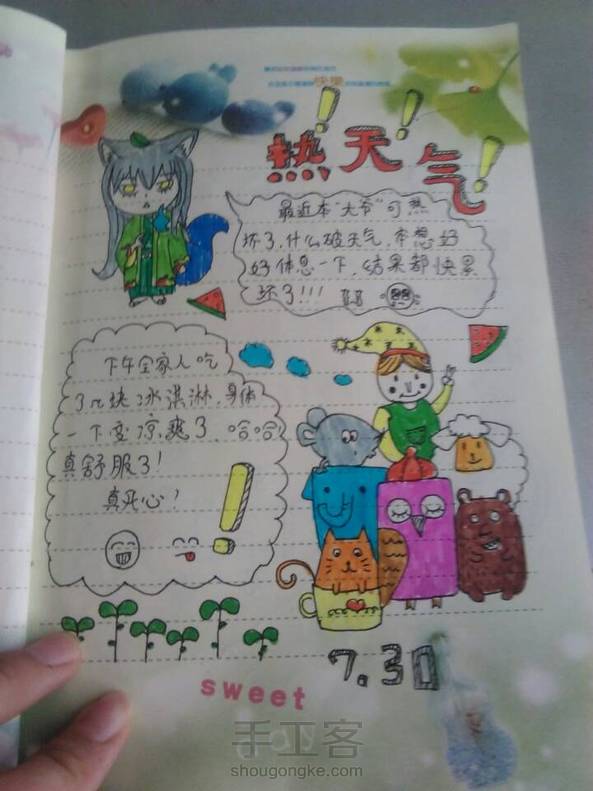 快樂
热天气!
最近本"大爷"可热
坏了,什么破天气,本想好
好休息一下,结果都快累
坏了!!!
下午全家人吃
了几块冰淇淋,身体
一下变凉爽了,哈哈!
真舒服了!
真开心!
7.30
sweet
手工客
shougongke.com